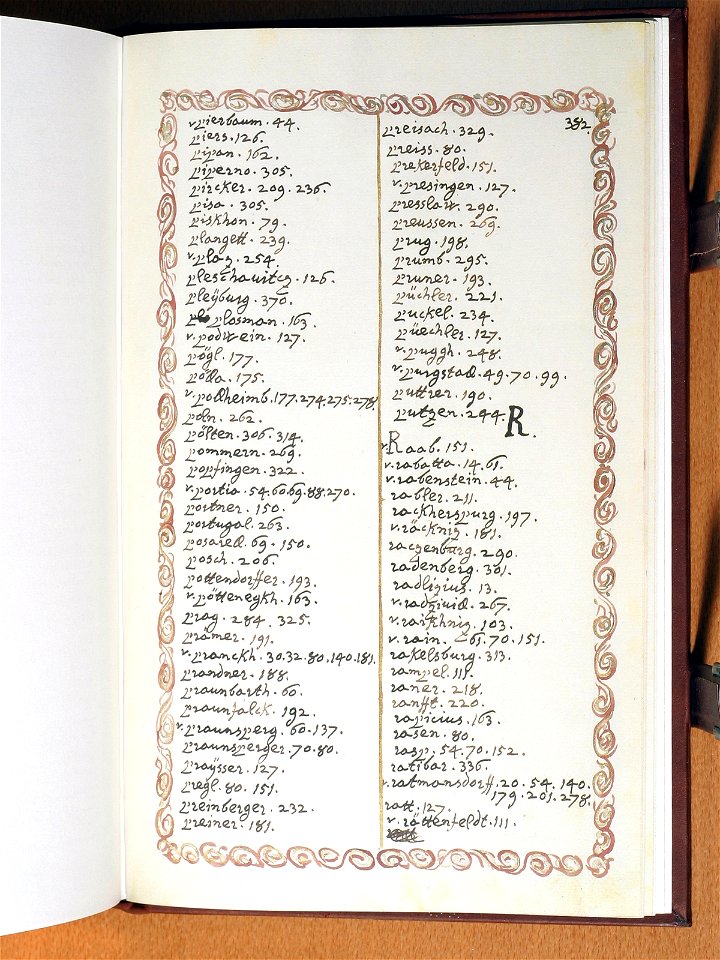 v. pierbaum. 44.
piers. 126.
pipan. 162.
piperno. 305.
pircker. 209. 236.
pisa. 305.
piskhon. 79.
plangett. 239.
v. plaz. 254.
pleschauitcz. 126.
pleÿburg. 370.
plosman. 163.
v. podwein. 127.
pögl. 177.
polla. 175.
v. polheimb. 177. 274. 275. 278.
poln. 262.
pölten. 306. 314.
pommern. 269.
popfingen. 322.
v. portia. 54. 60. 69. 88. 270.
portner. 150.
portugal. 263.
posarell. 69. 150.
posch. 206.
pottendorffer. 193.
v. pöttenegkh. 163.
prag. 284. 325.
prämer. 191.
v. pranckh. 30. 32. 80. 140. 181.
prandner. 188.
praunbarth. 60.
praunfalck. 192.
v. praunsperg. 60. 137.
praunsperger. 70. 80.
praÿsser. 127.
pregl. 80. 151.
preinberger. 232.
preiner. 181.
382.
preisach. 329.
preiss. 80.
prekerfeld. 151.
v. presingen. 127.
presslaw. 290.
preussen. 269.
prug. 198.
prumb. 295.
pruner. 193.
püchler. 221.
puckel. 234.
püechler. 127.
v. puggh. 248.
v. purgstall. 49. 70. 99.
puttrer. 190.
putzen. 244.
R.
v. Raab. 151.
v. rabatta. 14. 61.
v. rabenstein. 44.
rabler. 211.
rackherspurg. 197.
v. räckniz. 181.
raczenburg. 290.
radenberg. 301.
radlizius. 13.
v. radziuil. 267.
v. raikhniz. 103.
v. rain. 61. 70. 151.
rakelsburg. 313.
rampel. 111.
raner. 218.
ranfft. 220.
rapicius. 163.
rasen. 80.
rasp. 54. 70. 152.
ratibar. 336.
v. ratmansdorff. 20. 54. 140.
179. 201. 278.
ratt. 127.
v. rättenfeldt. 111.